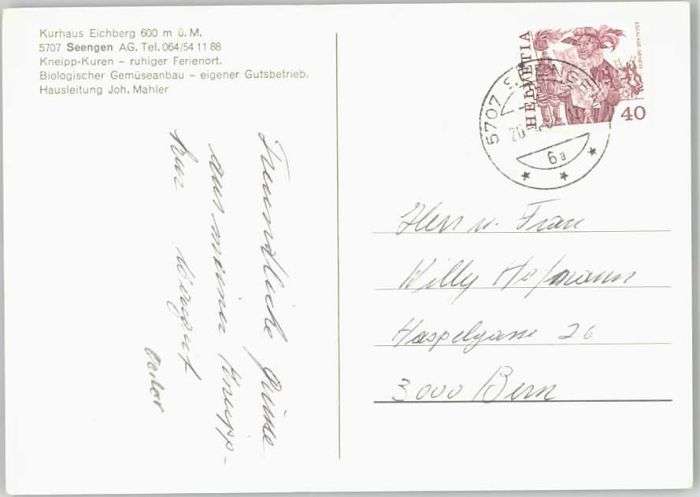 Kurhaus Eichberg 600 m ü. M.
5707 Seengen AG. Tel. 064/54 11 88
Kneipp-Kuren – ruhiger Ferienort.
Biologischer Gemüseanbau – eigener Gutsbetrieb.
Hausleitung Joh. Mahler
HELVETIA
40
5707 SEENGEN
6a
Freundliche Grüsse
aus meiner Kneipp-
kur
Herr u. Frau
Willy Hofmann
Haspelgasse 26
3000 Bern